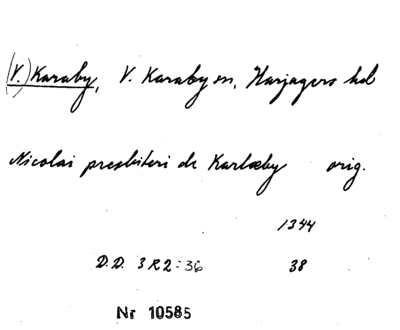 (V.) Karaby, V. Karaby sn, Harjagers hd
Nicolai presbiteri de Karlæby orig.
1344
D.D. 3 R 2:36 38
Nr 10585